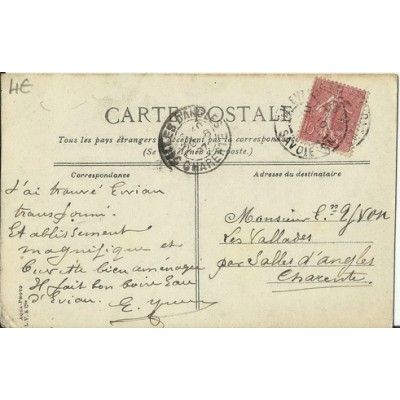 4€
CARTE POSTALE
Tous les pays étrangers acceptent pas la correspondance
(Se à la poste.)
Correspondance
Adresse du destinataire
J'ai trouvé Evian
transformé.
Etablissement
magnifique et
Buvette bien aménagée
Il fait bon boire l'eau
d'Evian.
E. Yvon
Monsieur E. Yvon
Les Vallades
par Salles d'angles
Charente
CHARENTE
SAVOIE
10